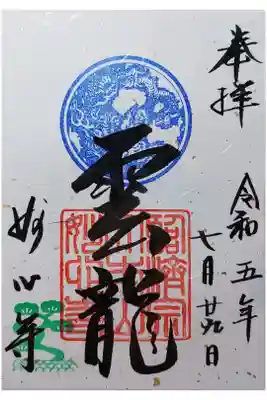 奉拝
令和五年
七月廿九日
雲龍
妙心寺